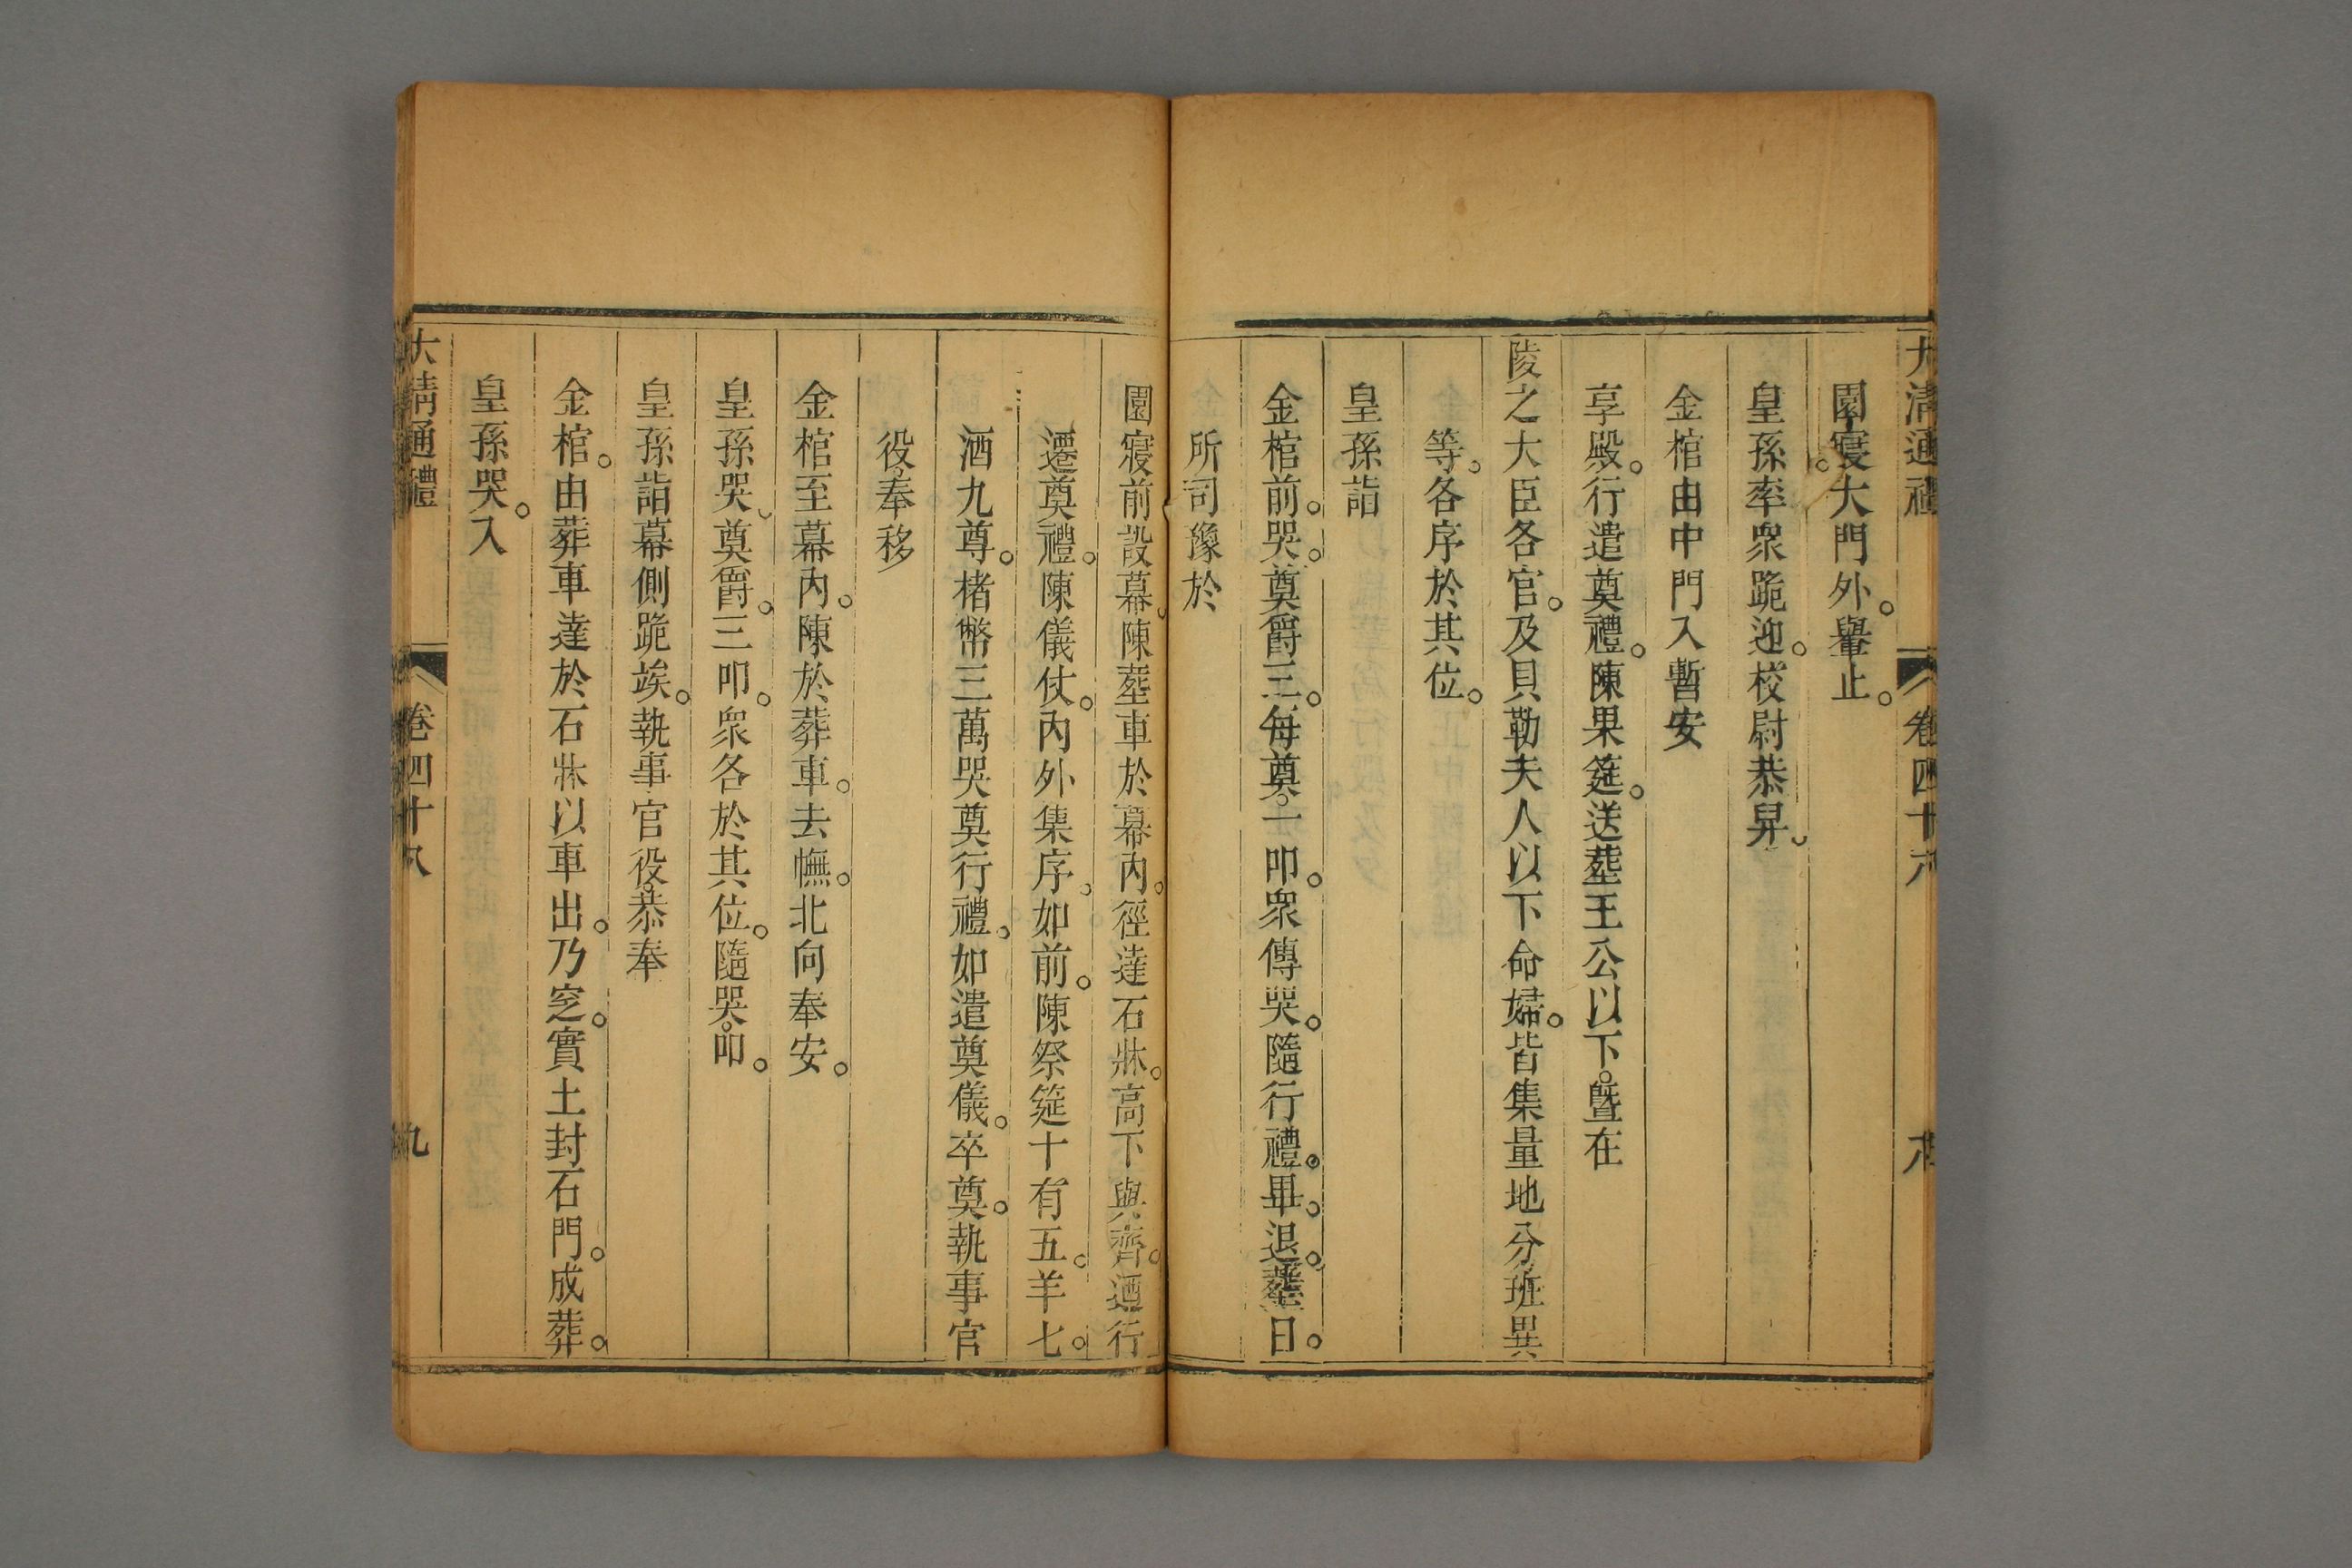 大清通禮 卷四十八 八
園寢大門外。轝止。
皇孫率衆跪迎。校尉恭舁。
金棺由中門入暫安
享殿。行遣奠禮。陳果筵。送塟王公以下。暨在
陵之大臣各官。及貝勒夫人以下命婦。皆集量地分班異
等。各序於其位。
皇孫詣
金棺前。哭。奠爵三。每奠。一叩。衆傳哭。隨行禮。畢。退。塟日。
所司豫於
園寢前設幕。陳塟車於幕內。徑達石牀。高下與齊。迺行
遷奠禮。陳儀仗。內外集序。如前。陳祭筵十有五。羊七。
酒九尊。楮幣三萬哭奠行禮。如遣奠儀。卒奠。執事官
役。奉移
金棺至幕內。陳於葬車。去幠。北向奉安。
皇孫哭。奠爵。三叩。衆各於其位。隨哭。叩。
皇孫詣幕側跪竢。執事官役。恭奉
金棺。由葬車達於石牀以車出。乃窆。實土封石門。成葬。
皇孫哭。入
大清通禮 卷四十八 九